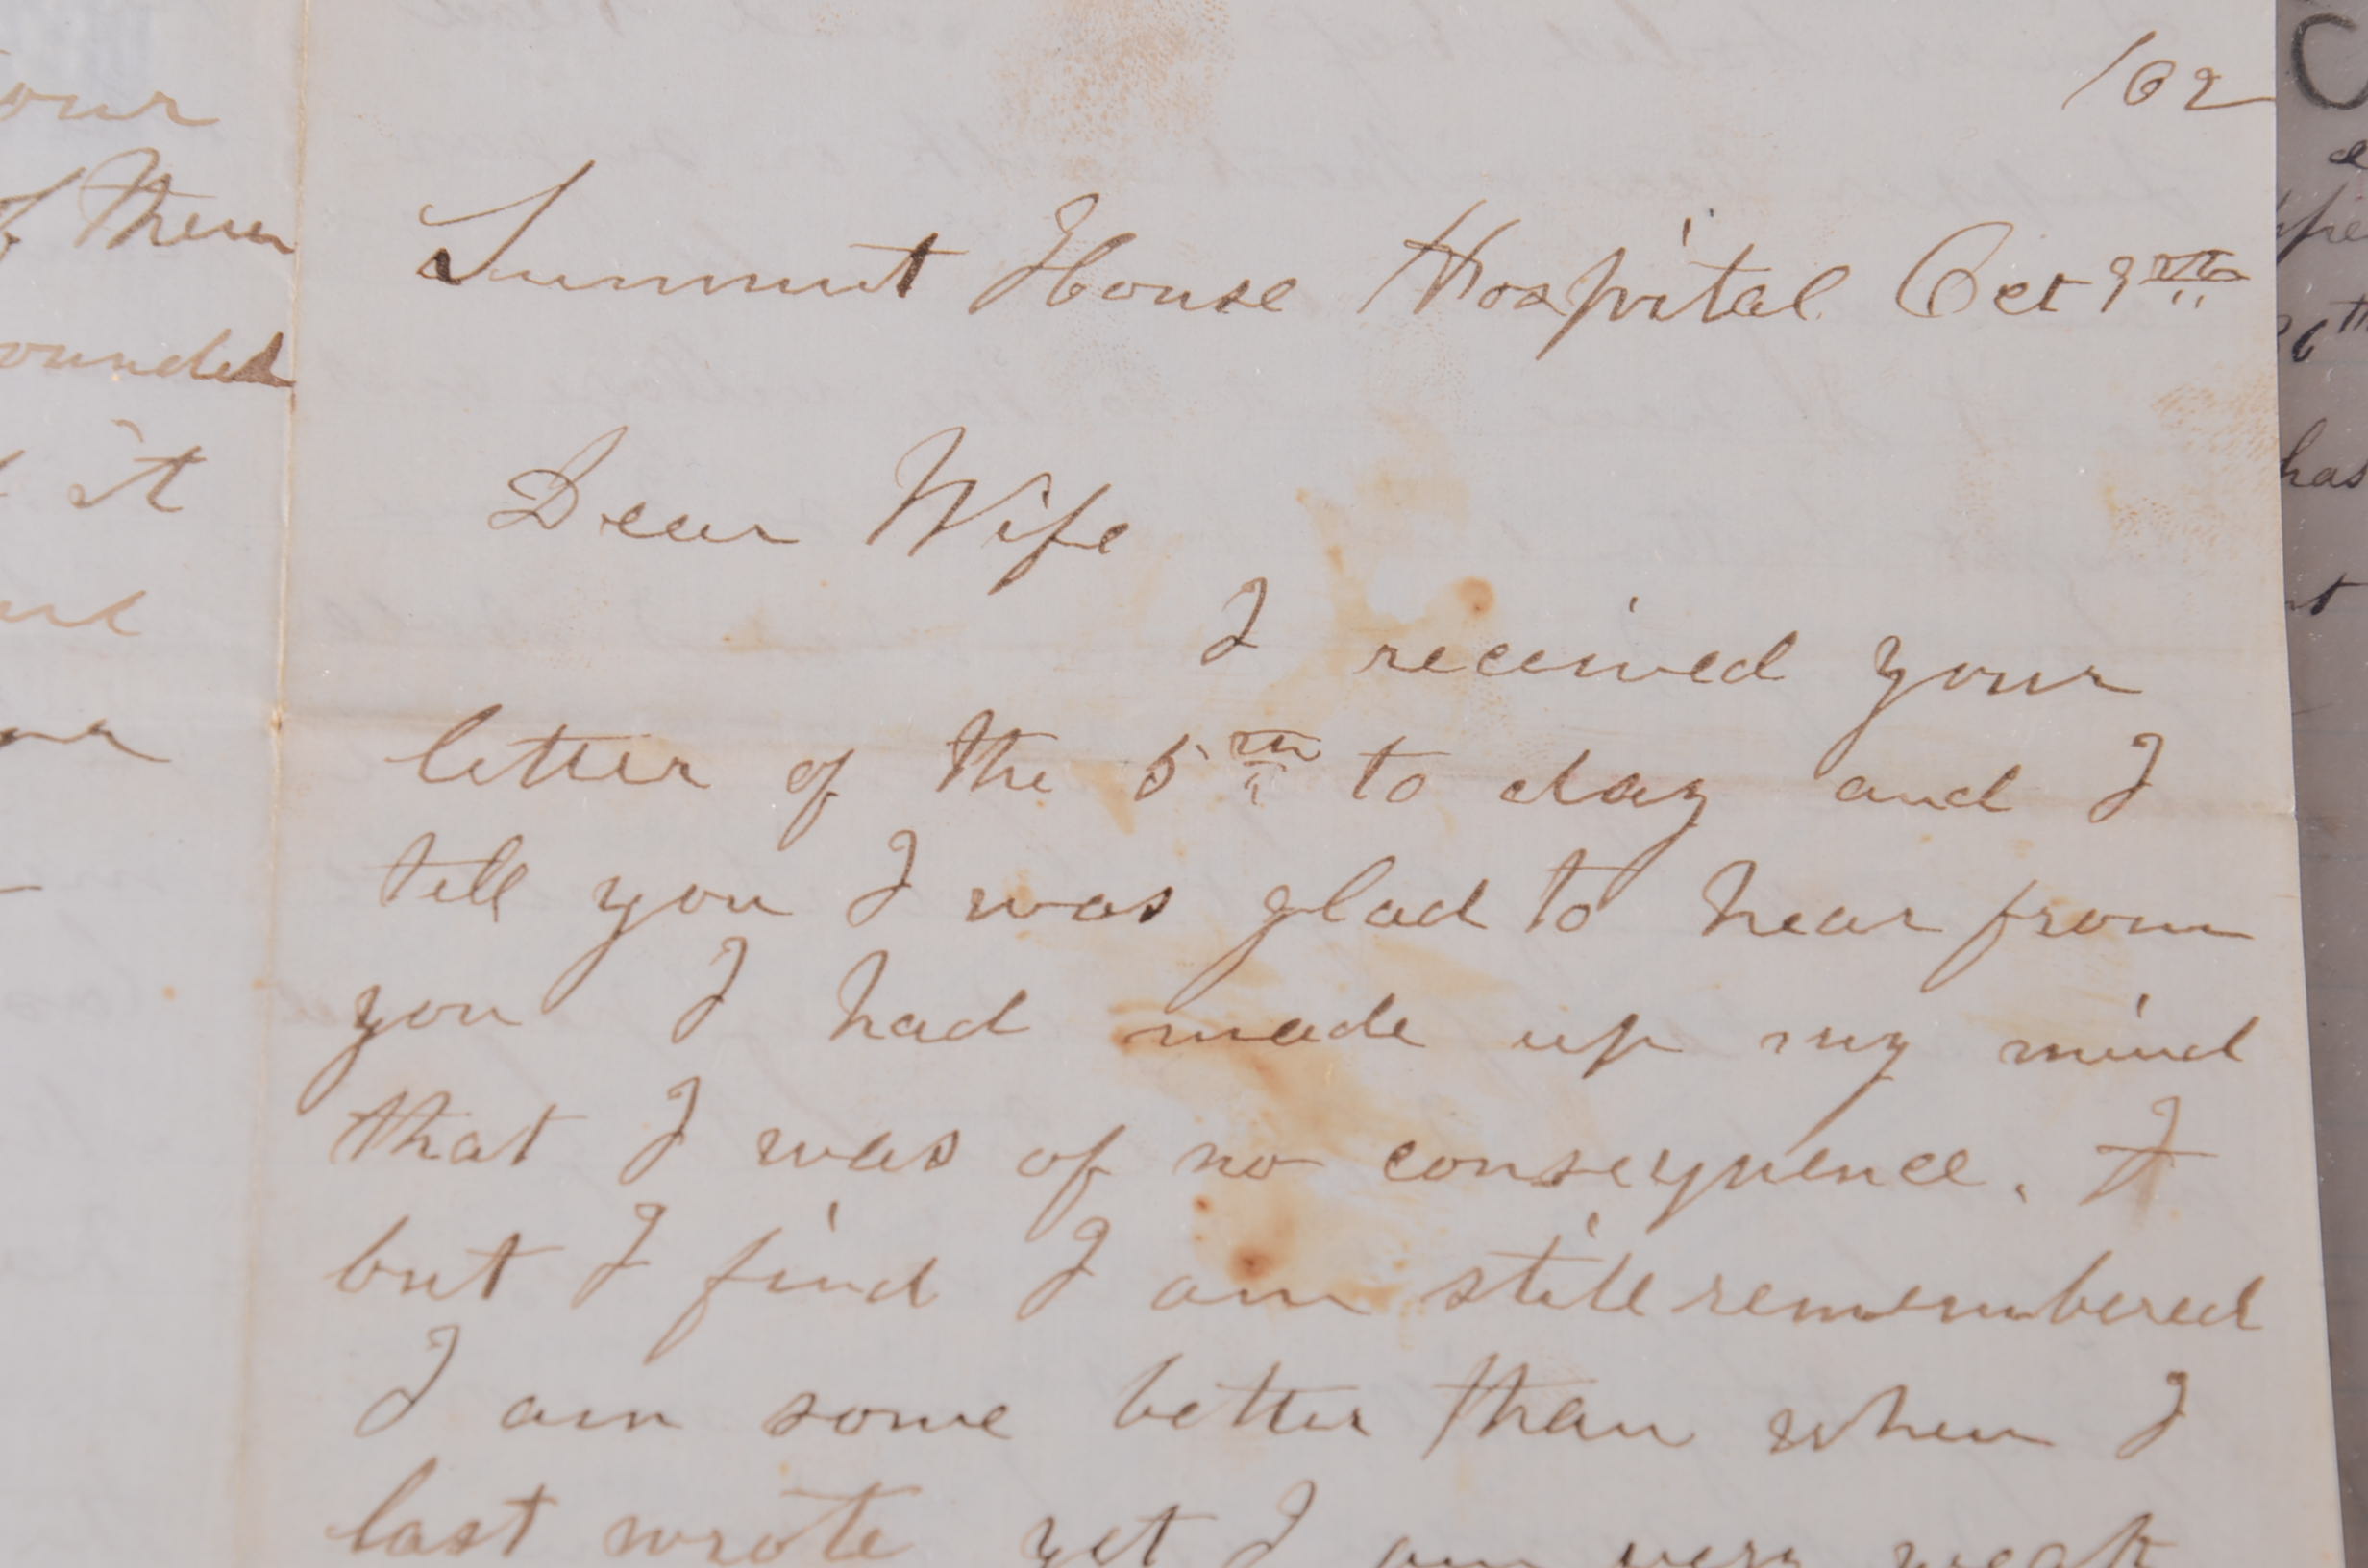 our
of them
ounded
it
/62
Summit House Hospital Oct 9th
Dear Wife
I received your
letter of the 5th to day and I
tell you I was glad to hear from
you I had made up my mind
that I was of no consequence. I
but I find I am still remembered
I am some better than when I
last wrote yet I am very weak
26th
has